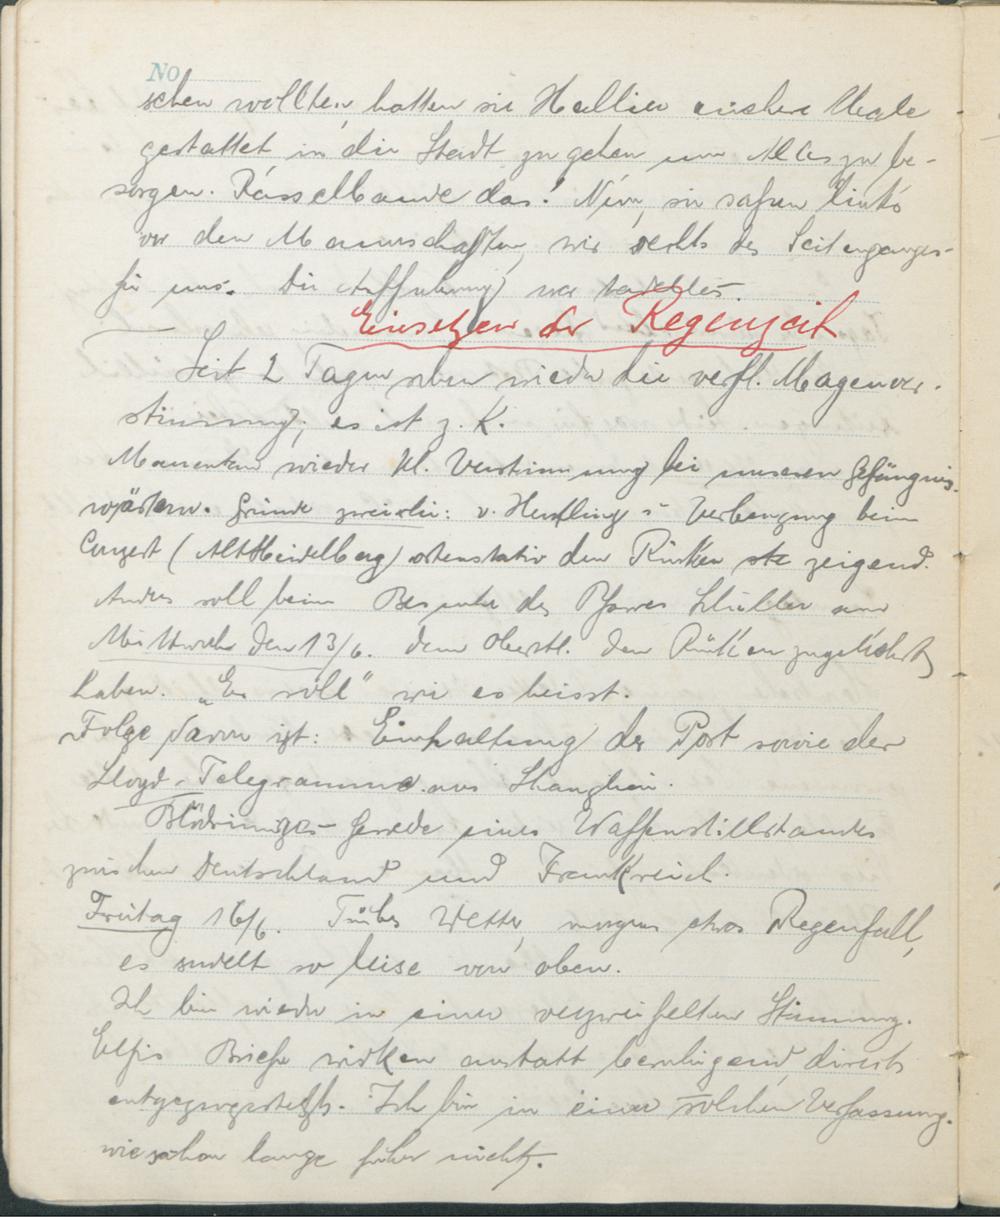 No
sehen wollten, hatten sie Hellien mehrere Male
gestattet in die Stadt zu gehen um Alles zu be-
sorgen. Rasselbande das! Nun, sie saßen links
vor den Mannschaften, wir rechts des Seitenganges
für uns. Die Aufführung war tadellos.
Einsetzen der Regenzeit
Seit 2 Tagen wieder die verfl. Magenver-
stimmung; es ist z. K.
Momentan wieder kl. Verstimmung bei unseren Gefängnis-
wärtern. Gründe zweierlei: v. Hertling's Verbeugung beim
Conzert (Alt Heidelberg) ostentativ den Rücken zeigend.
Andres soll beim Besuche des Pfarres Schiller am
Mittwoch den 13/6. dem Oberstl. den Rücken zugekehrt
haben. „Er soll" wie es heisst.
Folge davon ist: Einhaltung der Post sowie der
Lloyd-Telegramme aus Shanghai.
Blödsinniges Gerede eines Waffenstillstandes
zwischen Deutschland und Frankreich.
Freitag 16/6. Trübes Wetter, morgens etwas Regenfall,
es sudelt so leise von oben.
Ich bin wieder in einer verzweifelten Stimmung.
Elfis Briefe wirken anstatt beruhigend, direkt
entgegengesetzt. Ich bin in einer solchen Verfassung,
wie schon lange früher nicht.